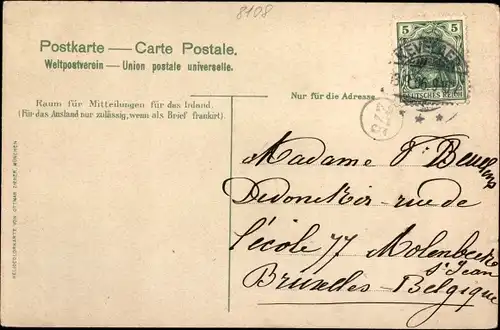 8108
Postkarte — Carte Postale.
Weltpostverein — Union postale universelle.
5 5
DEUTSCHES REICH
Raum für Mitteilungen für das Inland.
(Für das Ausland nur zulässig, wenn als Brief frankiert.)
Nur für die Adresse
Madame
rue de
l'école 77 Molenbeek
St Jean
Bruxelles-Belgique